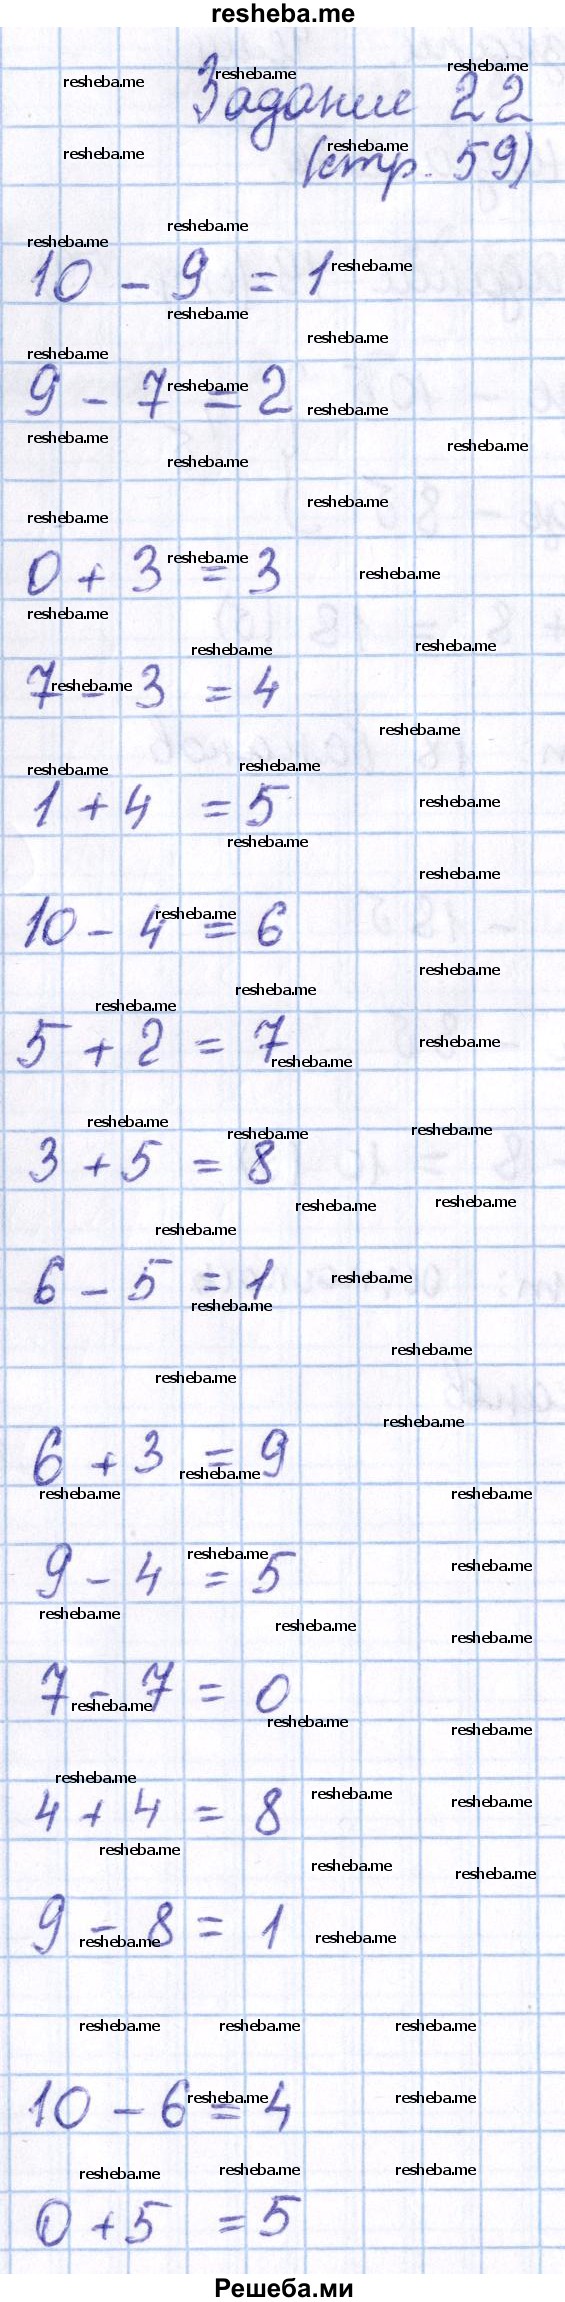 resheba.me
Задание 22
(стр. 59)
10 - 9 = 1
9 - 7 = 2
0 + 3 = 3
7 - 3 = 4
1 + 4 = 5
10 - 4 = 6
5 + 2 = 7
3 + 5 = 8
6 - 5 = 1
6 + 3 = 9
9 - 4 = 5
7 - 7 = 0
4 + 4 = 8
9 - 8 = 1
10 - 6 = 4
0 + 5 = 5
Решеба.ми